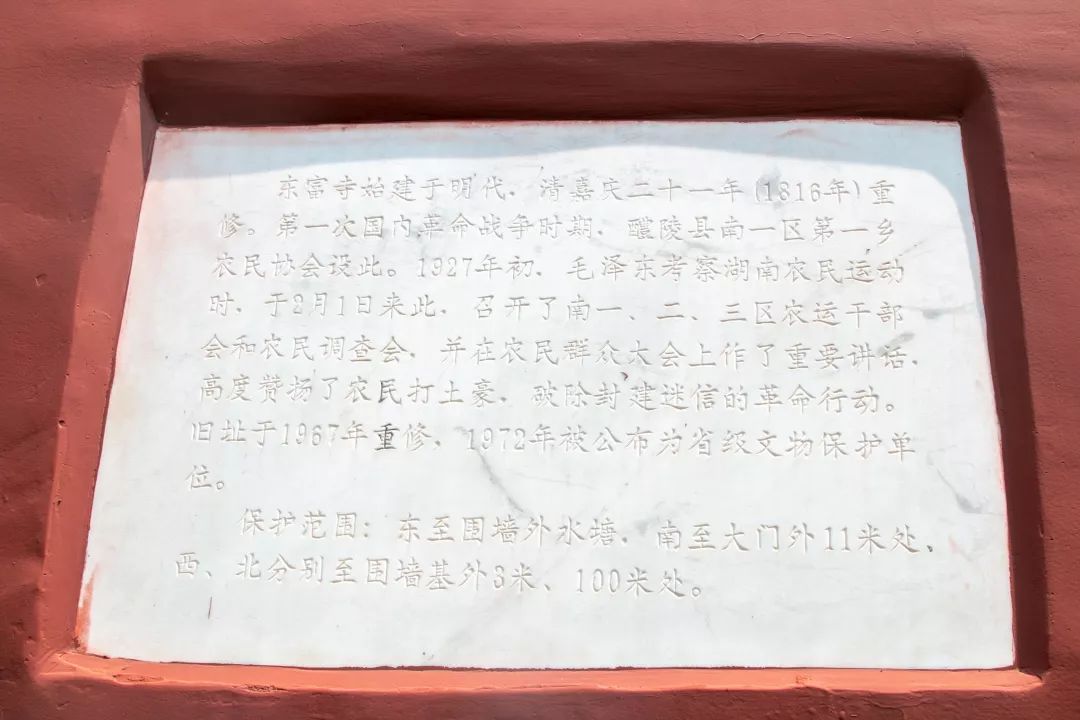 东富寺始建于明代，清嘉庆二十一年(1816年)重
修。第一次国内革命战争时期，醴陵县南一区第一乡
农民协会设此。1927年初，毛泽东考察湖南农民运动
时，于2月1日来此，召开了南一、二、三区农运干部
会和农民调查会，并在农民群众大会上作了重要讲话，
高度赞扬了农民打土豪，破除封建迷信的革命行动。
旧址于1967年重修，1972年被公布为省级文物保护单
位。
保护范围：东至围墙外水塘，南至大门外11米处、
西、北分别至围墙基外3米、100米处。